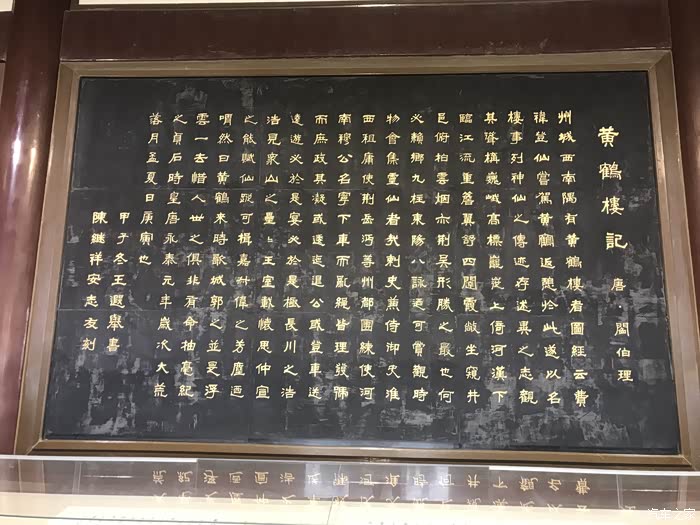 黄鶴樓記 唐·閻伯理
州城西南隅有黄鶴樓者圖經云費
禕登仙嘗駕黄鶴返憩於此遂以名
樓事列神仙之傳迹存述異之志觀
其聳構巍峨高標巃嵸上倚河漢下
臨江流重簷翼舒四闥霞敞坐窺井
邑俯拍雲烟亦荆吴形勝之最也何
必賴鄉九柱東陽八詠乃可賞觀時
物會集靈仙者哉刺史兼侍御史淮
西租庸使荆岳沔等州都團練使河
南穆公名寧下車而亂繩皆理發號
而庶政其凝或逶迤退公或登車送
遠遊必於是宴必於是極長川之浩
浩見衆山之壘壘王室載懷思仲宣
之能賦仙蹤可揖嘉叔偉之芳塵迺
喟然曰黄鶴來時歌城郭之並是浮
雲一去惜人世之俱非有命抽毫紀
之貞石時皇唐永泰元年歲次大荒
落月孟夏日庚寅也
甲子冬王遐舉書
陳継祥安志友刻
汽车之家